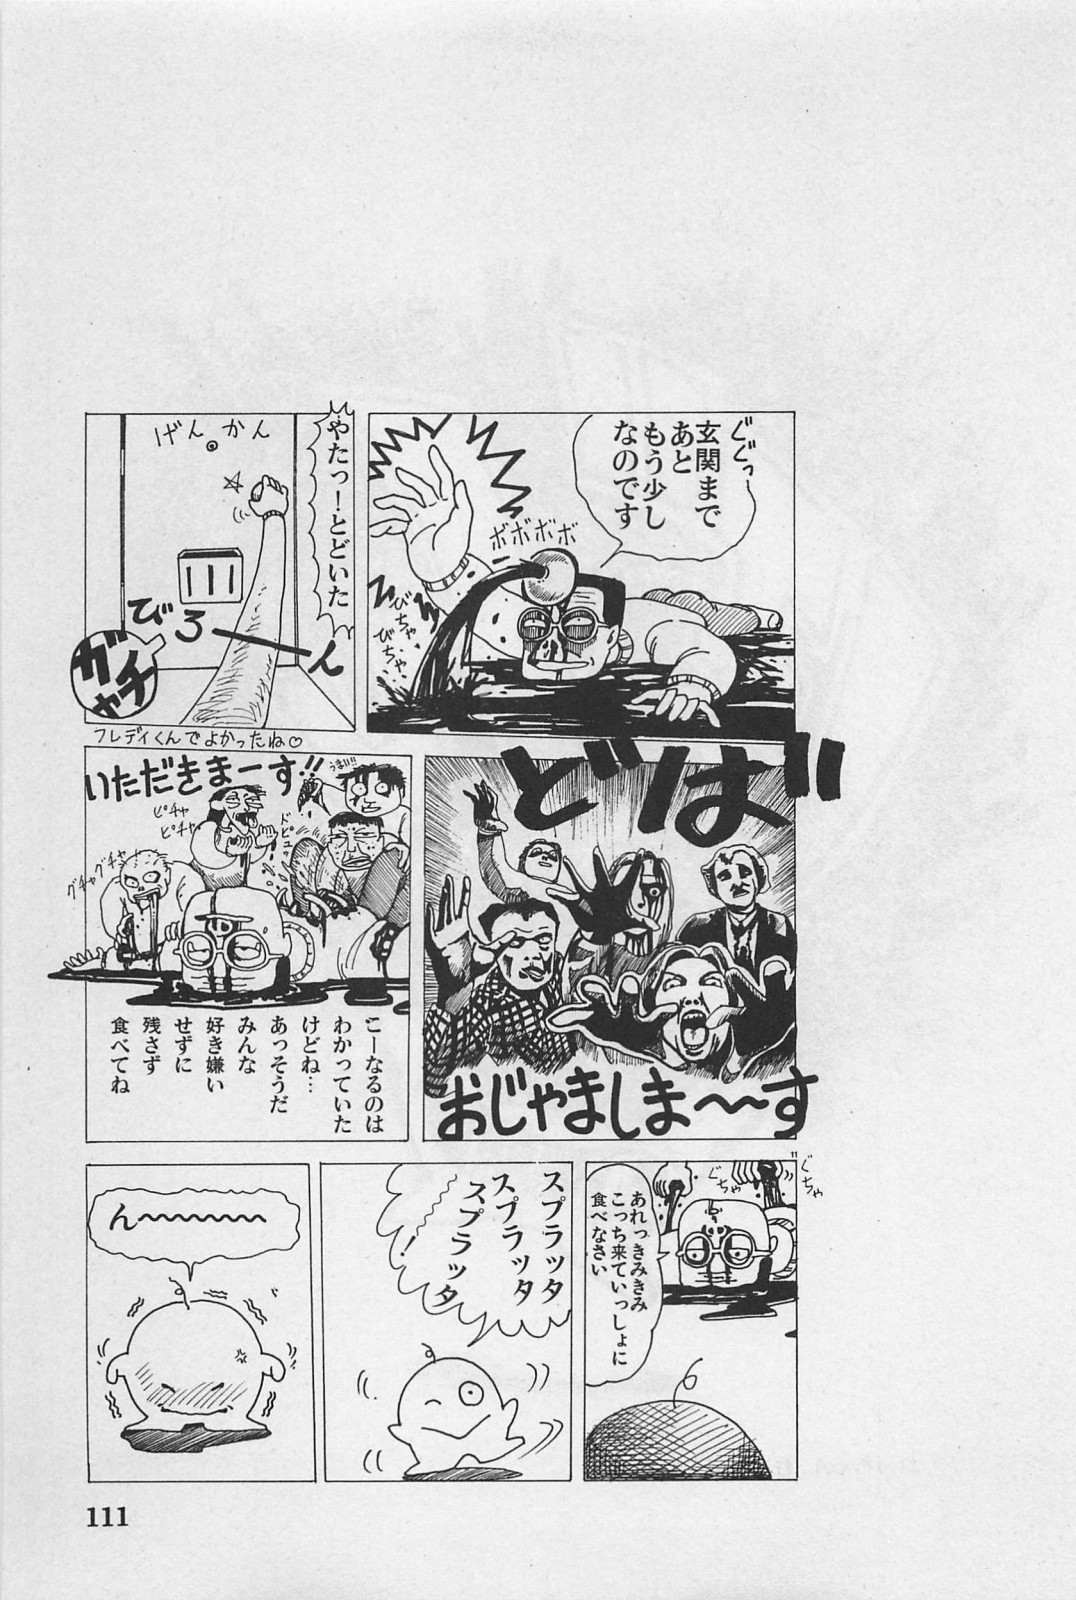 ぐぐっ
玄関まで
あと
もう少し
なのです
ボボボボ
びちゃびちゃ
やたっ！とどいた
げんかん
びろーん
ガチャ
フレディくんでよかったね♡
どばっ
おじゃましま〜〜す
いただきまーす!!
うまい!!!
ピチャ
ピチャ
ドピュー
グチャグチャ
こーなるのは
わかっていた
けどね…
あっそうだ
みんな
好き嫌い
せずに
残さず
食べてね
ぐちゃ
ぐちゃ
あれっきみきみ
こっち来ていっしょに
食べなさい
スプラッタ
スプラッタ
スプラッタ
〜〜〜！
ん〜〜〜〜〜〜
111